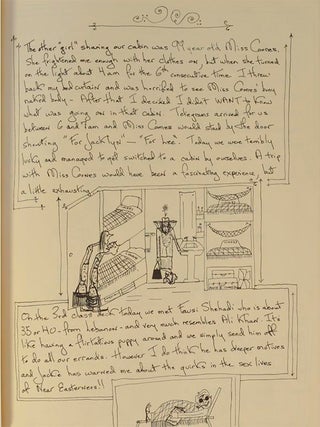 The other "girl" sharing our cabin was 99 year old Miss Cornes.
She frightened me enough with her clothes on, but when she turned
on the light about 4am for the 6th consecutive time. I threw
back my bed curtain and was horrified to see Miss Cornes bony
naked body - After that I decided I didn't WANT to know
what was going on in that cabin. Telegrams arrived for us
between 6 and 7am and Miss Cornes would stand by the door
shouting "For Jacklyn" - "For Lee". Today we were terribly
lucky and managed to get switched to a cabin by ourselves. A trip
with Miss Cornes would have been a fascinating experience, but
a little exhausting.
On the 3rd class deck today we met Fausi Shehadi who is about
35 or 40 - from Lebanon - and very much resembles Ali Khan. It's
like having a flirtatious puppy around and we simply send him off
to do all our errands. However I do think he has deeper motives
and Jackie has warned me about the quirks in the sex lives
of Near Easterners!!